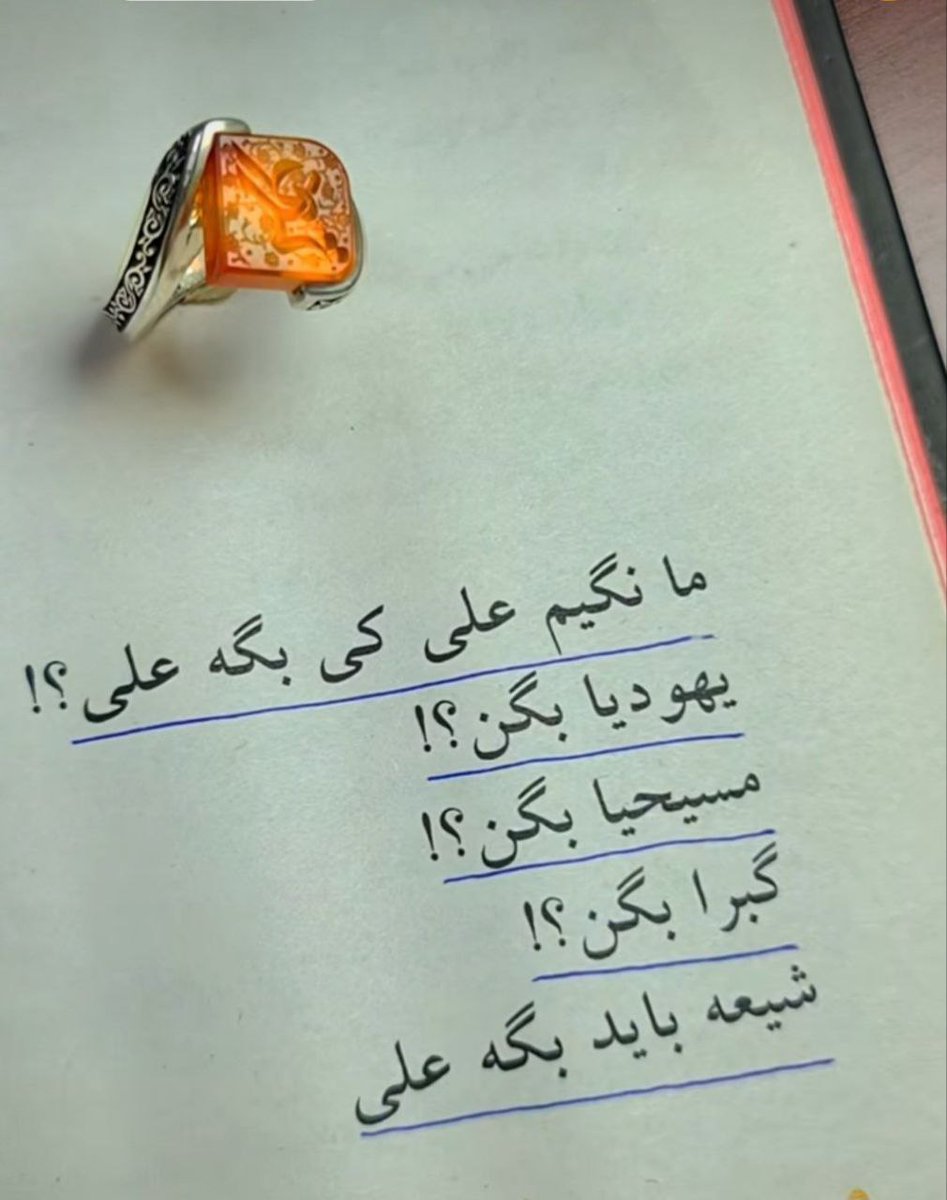 ما نگیم علی کی بگه علی؟!
یهودیا بگن؟!
مسیحیا بگن؟!
گبرا بگن؟!
شیعه باید بگه علی